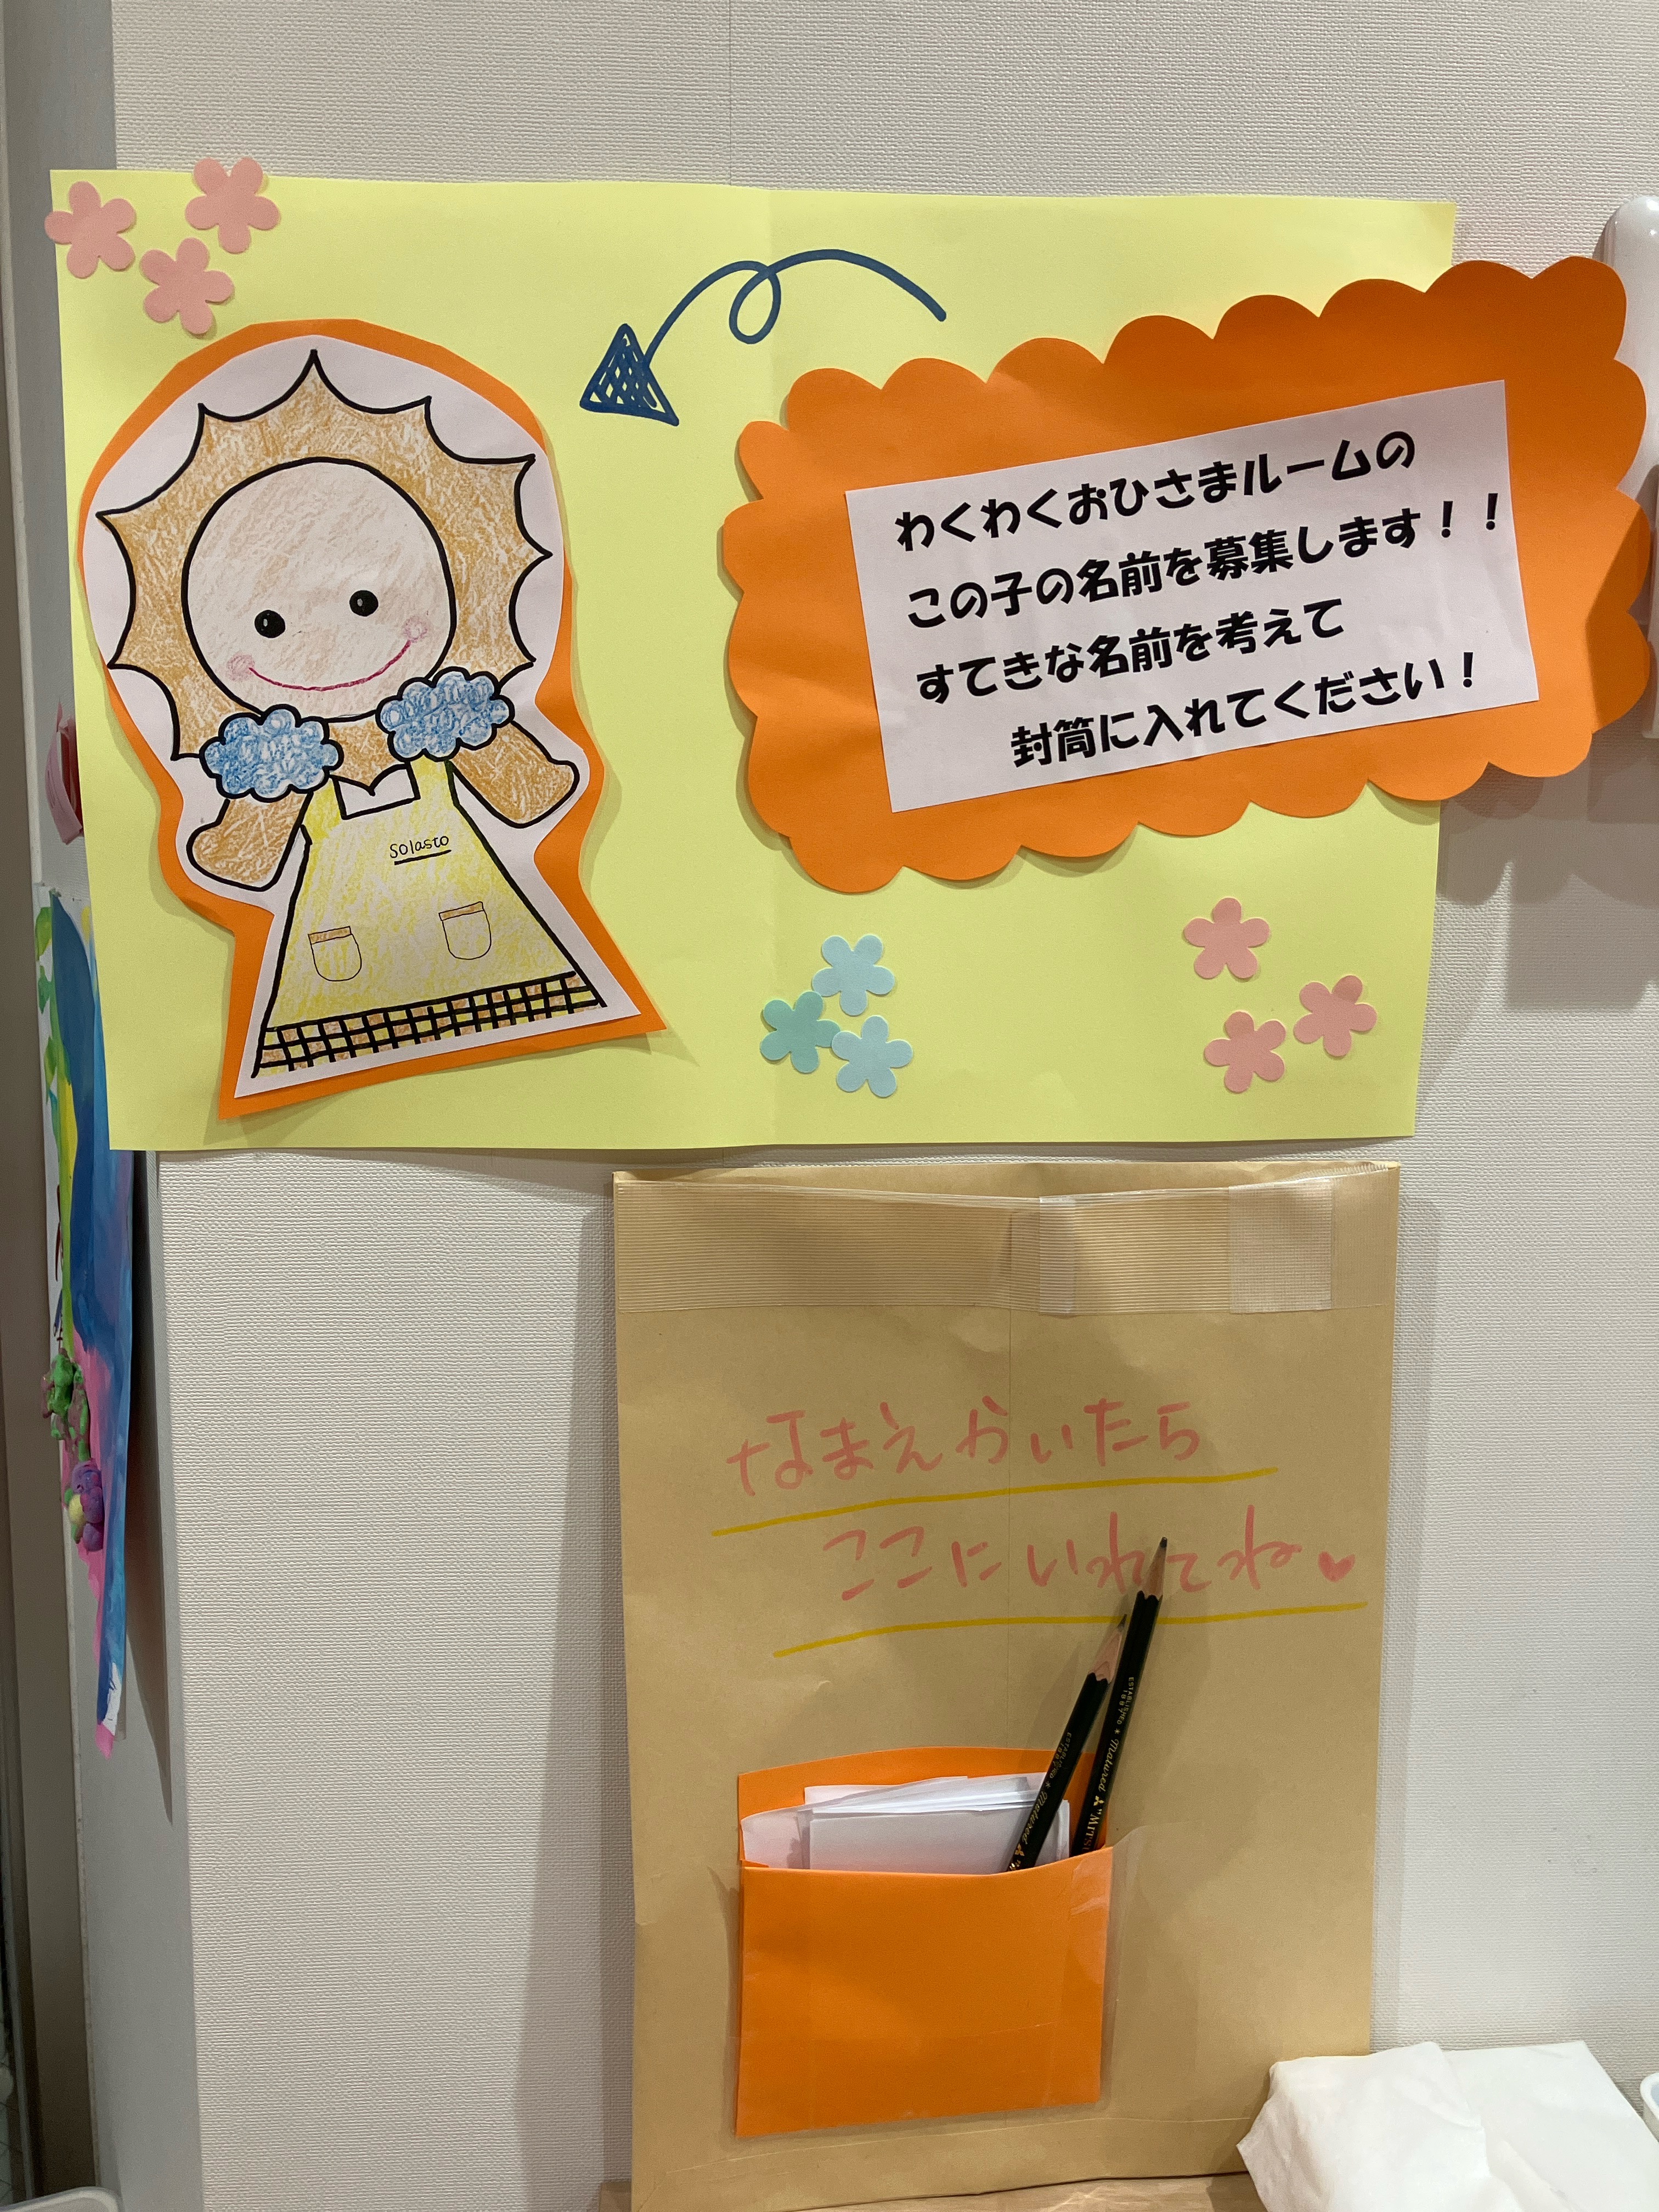 わくわくおひさまルームの
この子の名前を募集します！！
すてきな名前を考えて
封筒に入れてください！
solasto
なまえかいたら
ここにいれてね♥